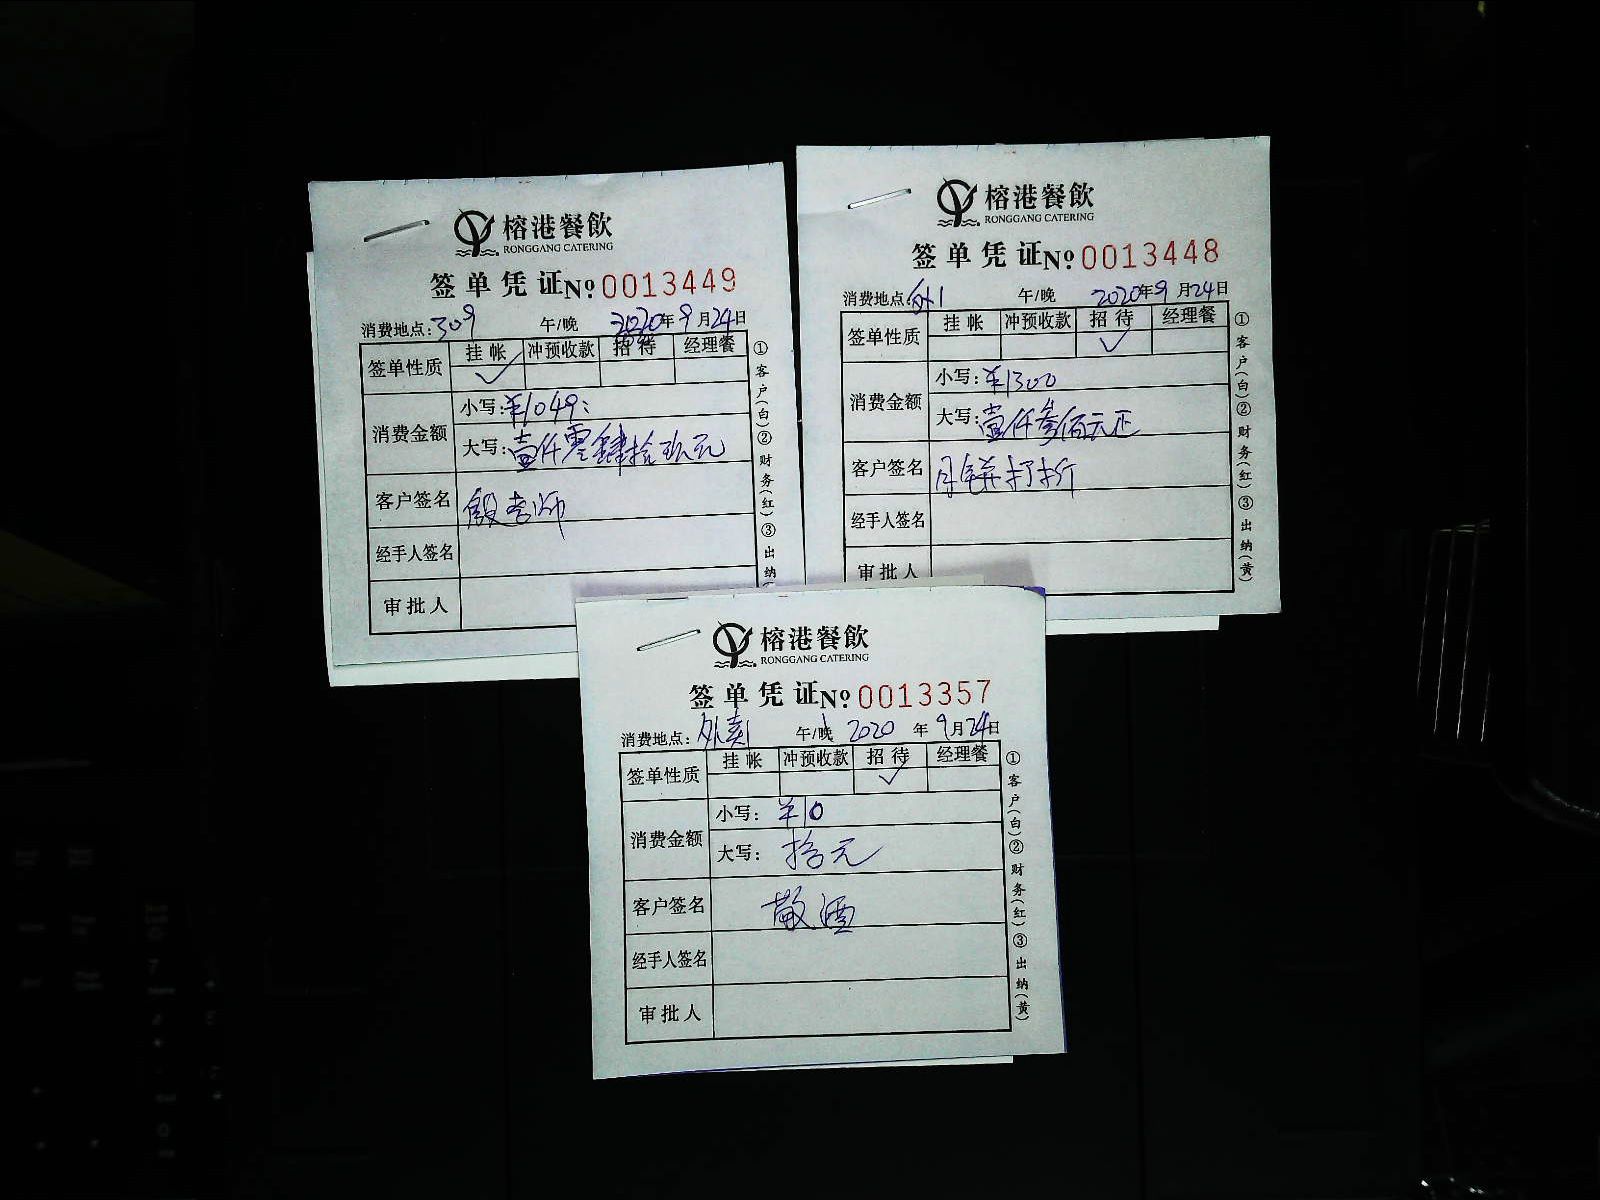 榕港餐飲
RONGGANG CATERING
签单凭证 No 0013449
消费地点:309 午/晚 2020年9月24日
签单性质 挂帐 冲预收款 招待 经理餐
✓
消费金额
小写:¥1049:
大写:壹仟零肆拾玖元
客户签名 殷老师
经手人签名
审批人
①客户(白)②财务(红)③出纳
榕港餐飲
RONGGANG CATERING
签单凭证 No 0013448
消费地点:外1 午/晚 2020年9月24日
签单性质 挂帐 冲预收款 招待 经理餐
✓
消费金额
小写:¥1300
大写:壹仟叁佰元正
客户签名 月饼打折
经手人签名
审批人
①客户(白)②财务(红)③出纳(黄)
榕港餐飲
RONGGANG CATERING
签单凭证 No 0013357
消费地点:外卖1 午/晚 2020年9月24日
签单性质 挂帐 冲预收款 招待 经理餐
✓
消费金额
小写:¥10
大写:拾元
客户签名 散酒
经手人签名
审批人
①客户(白)②财务(红)③出纳(黄)